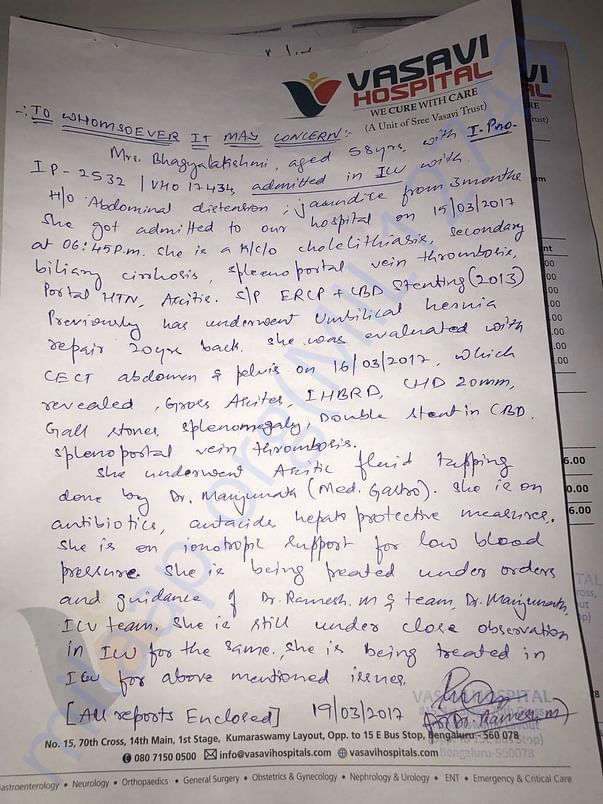 VASAVI
HOSPITAL
WE CURE WITH CARE
(A Unit of Sree Vasavi Trust)
VI
AL
RE
ust)
TO WHOMSOEVER IT MAY CONCERN:-
Mrs. Bhagyalakshmi, aged 58yrs, with I.P no-
IP-2532 / VHO 12434, admitted in ICU with
H/O Abdominal distension, jaundice from 3months
She got admitted to our hospital on 15/03/2017
at 06:45P.m. She is a K/C/O cholelithiasis, secondary
biliary cirrhosis, spleenoportal vein thrombosis,
Portal HTN, Ascitis. S/P ERCP + CBD Stenting (2013)
Previously has underwent Umbilical hernia
repair 20yrs back. She was evaluated with
CECT abdomen & pelvis on 16/03/2017, which
revealed, Gross Ascites, IHBRD, CHD 20mm,
Gall stones, splenomegaly, Double stent in CBD.
splenoportal vein thrombosis.
She underwent Ascitic fluid tapping
done by Dr. Manjunath (Med. Gastro). She is on
antibiotics, antacids hepato protective measures.
She is on ionotropic support for low blood
pressure. She is being treated under orders
and guidance of Dr. Ramesh. M & team, Dr. Manjunath,
ICU team. She is still under close observation
in ICU for the same. She is being treated in
ICU for above mentioned issues.
[All reports Enclosed] 19/03/2017
Dr. Ramesh M)
VASAVI HOSPITAL
Bengaluru-560078
6.00
0.00
6.00
No. 15, 70th Cross, 14th Main, 1st Stage, Kumaraswamy Layout, Opp. to 15 E Bus Stop, Bengaluru - 560 078
080 7150 0500 info@vasavihospitals.com vasavihospitals.com
astroenterology • Neurology • Orthopaedics • General Surgery • Obstetrics & Gynecology • Nephrology & Urology • ENT • Emergency & Critical Care